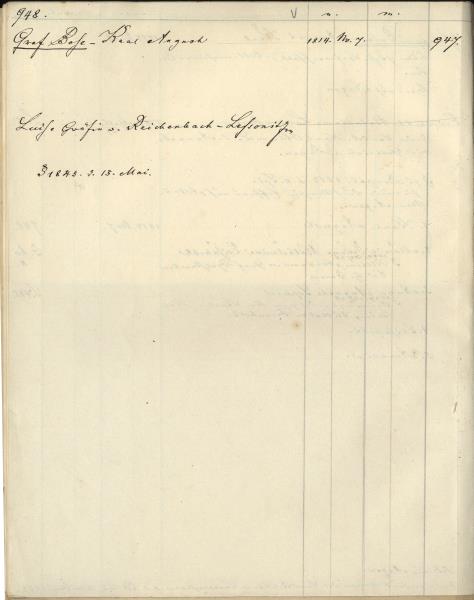 948. V n. m.
Graf Bose - Karl August 1814. No. 7. 947.
Luise Gräfin v. Reichenbach-Lessonitz
1845. d. 15. Mai.